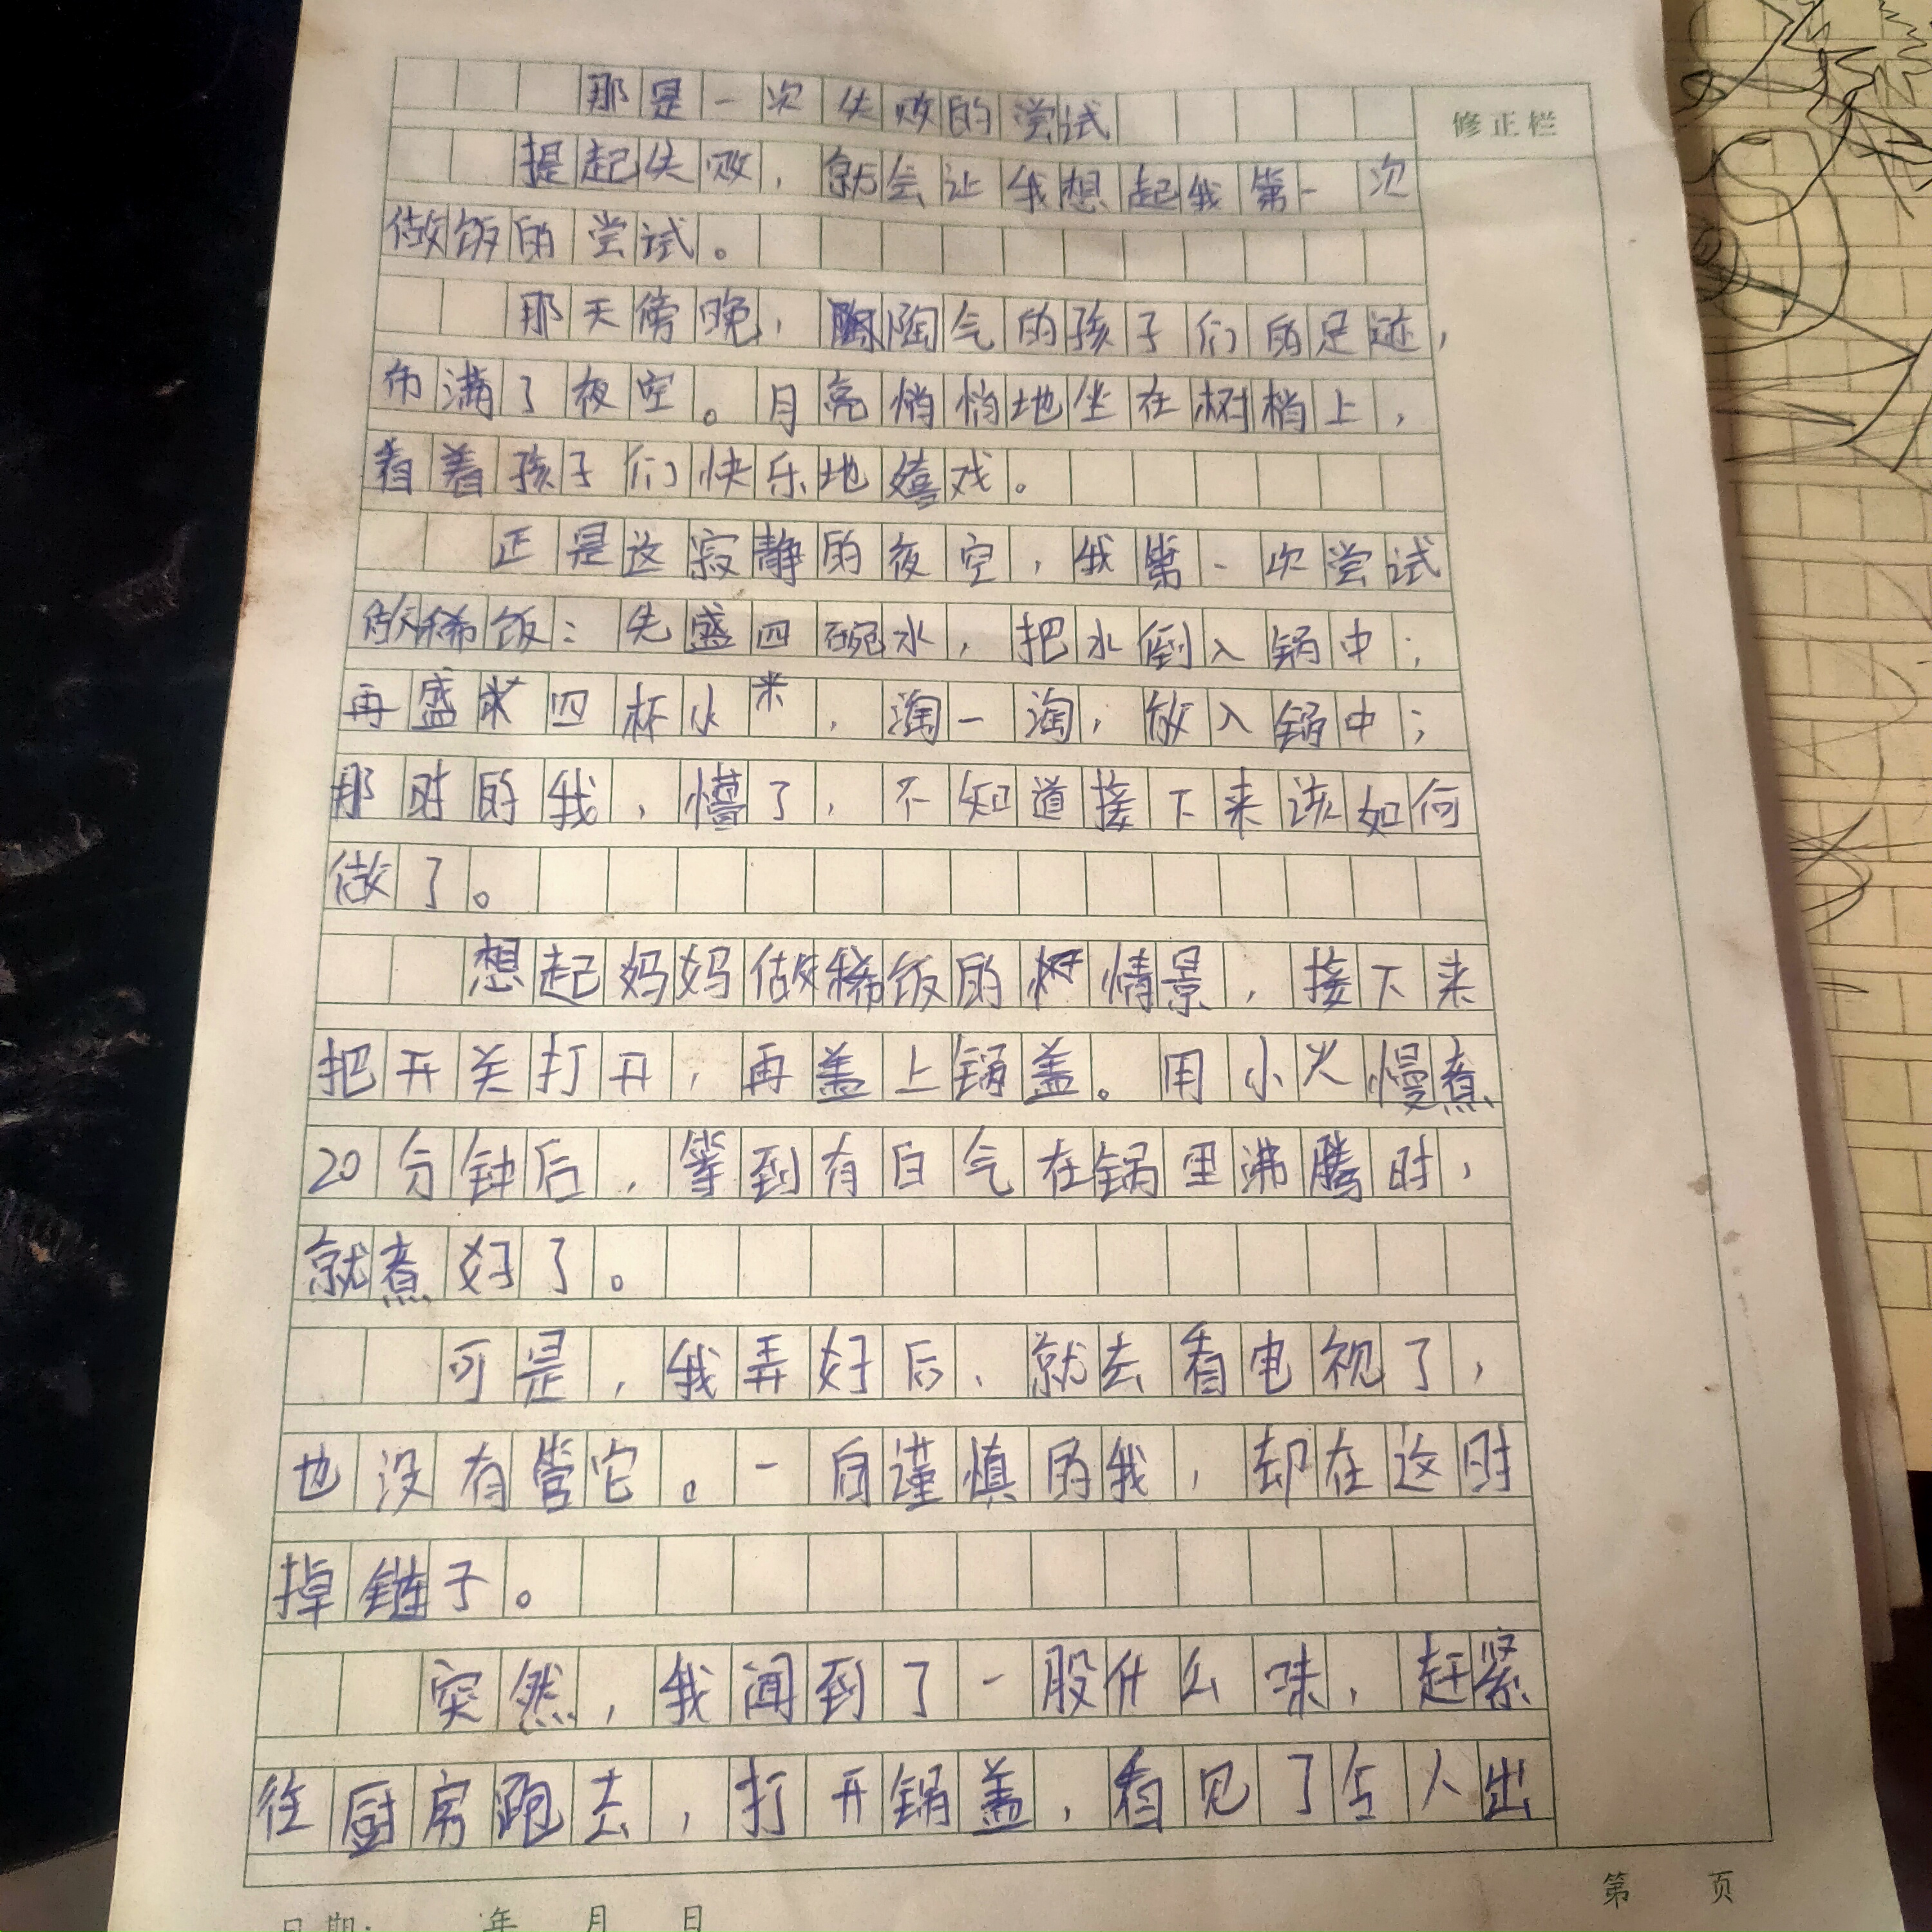 那是一次失败的尝试
修正栏
提起失败，就会让我想起我第一次
做饭的尝试。
那天傍晚，陶气的孩子们的足迹，
布满了夜空。月亮悄悄地坐在树梢上，
看着孩子们快乐地嬉戏。
正是这寂静的夜空，我第一次尝试
做稀饭：先盛四碗水，把水倒入锅中；
再盛四杯小米，淘一淘，放入锅中；
那时的我，懵了，不知道接下来该如何
做了。
想起妈妈做稀饭的情景，接下来
把开关打开，再盖上锅盖。用小火慢煮
20分钟后，等到有白气在锅里沸腾时，
就煮好了。
可是，我弄好后、就去看电视了，
也没有管它。一向谨慎的我，却在这时
掉链子。
突然，我闻到了一股什么味，赶紧
往厨房跑去，打开锅盖，看见了令人出
第 页
日期： 年 月 日